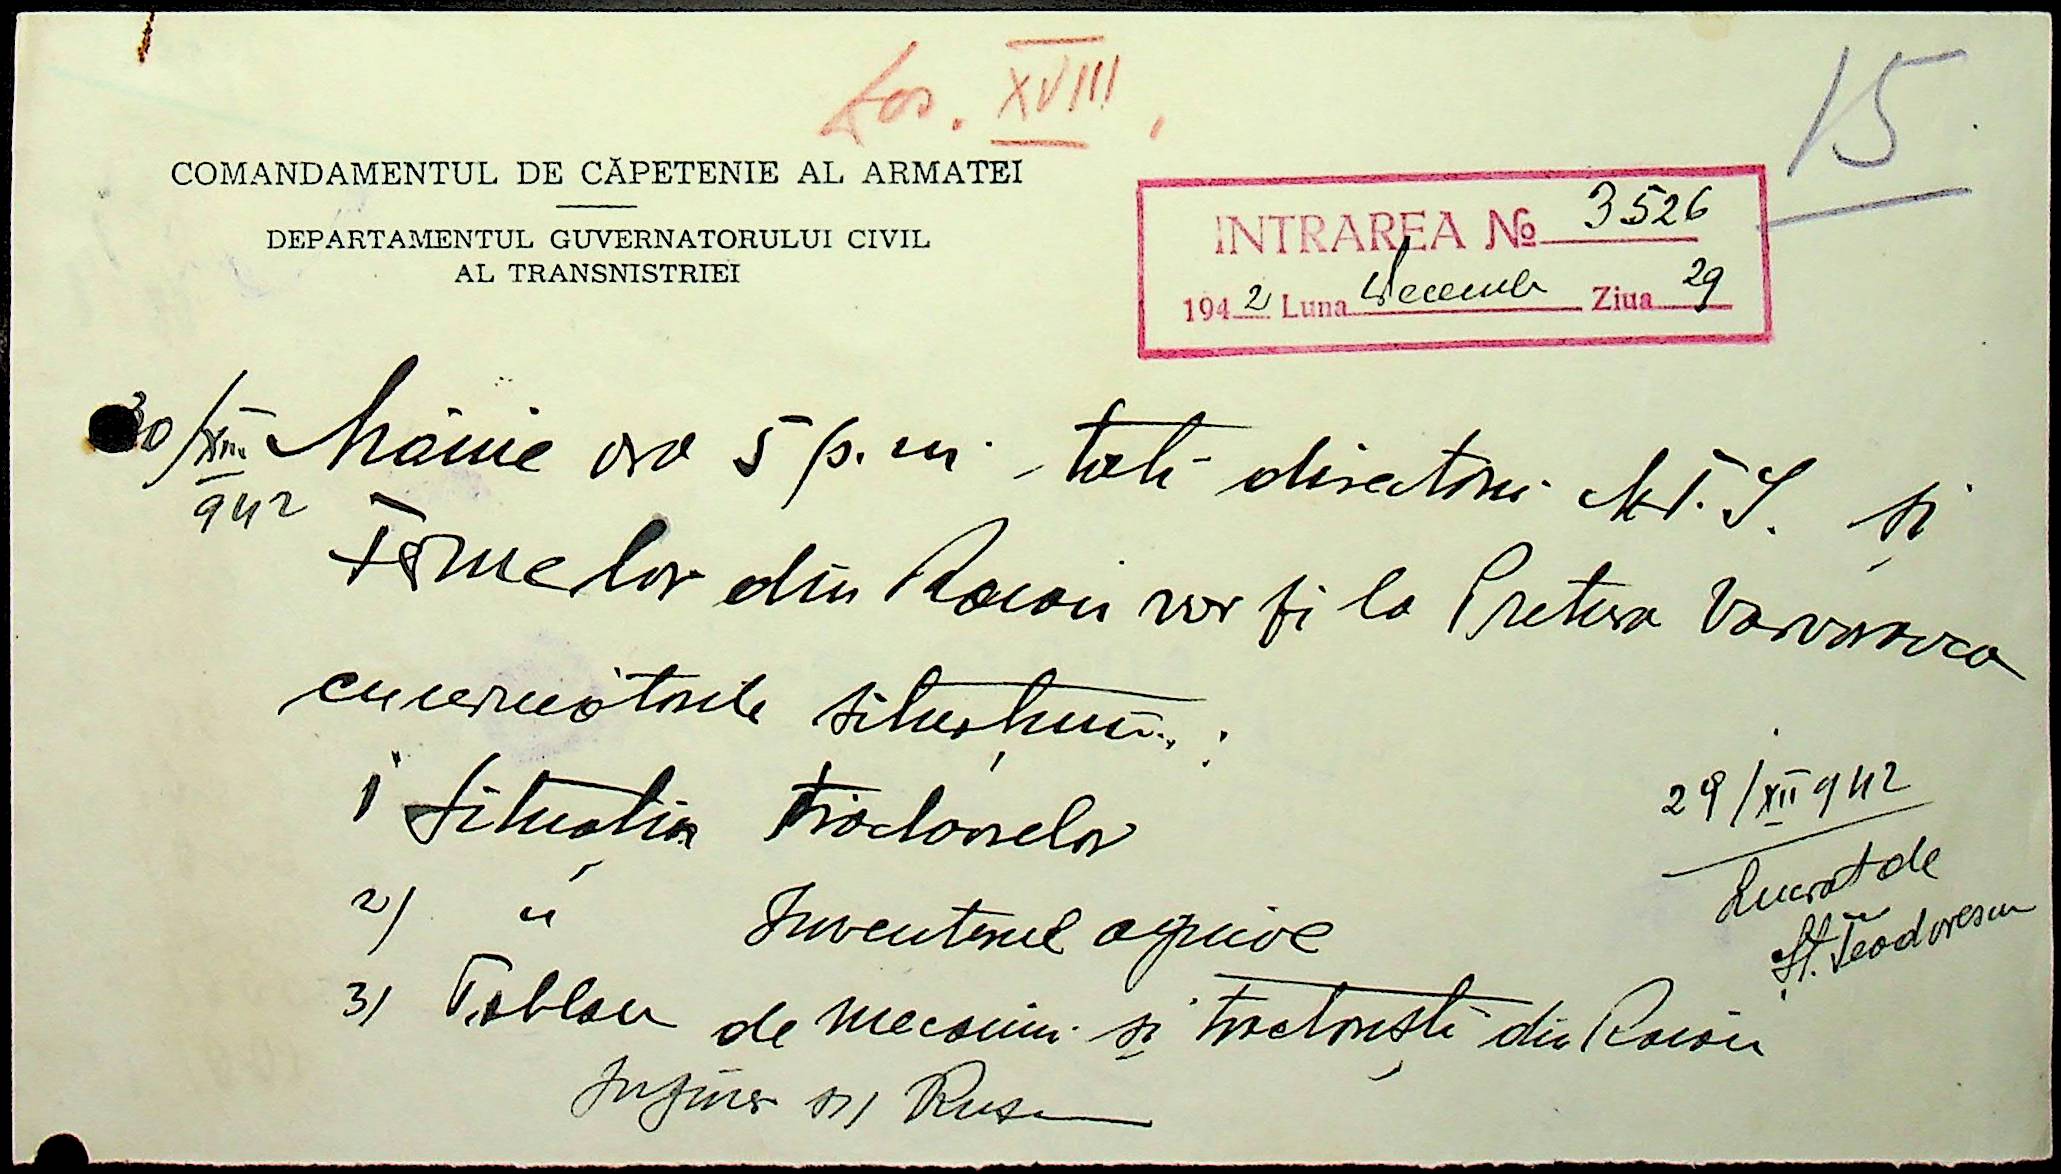 Dos. XVIII.
15
COMANDAMENTUL DE CĂPETENIE AL ARMATEI
DEPARTAMENTUL GUVERNATORULUI CIVIL
AL TRANSNISTRIEI
INTRAREA No 3526
1942 Luna Decembr Ziua 29
30/XII 942
Mâine ora 5 p.m. toti directorii M.T.S. și
Fermelor din Raion vor fi la Pretura Varvarovca
cu urmatorile situațiuni:
1 Situația tractoarelor
2) " Inventarul agricol
3) Tablou de mecanici și tractoriști din Raion
Inginer ss) Rusu
29/XII 942
Lucrat de
St. Teodorescu